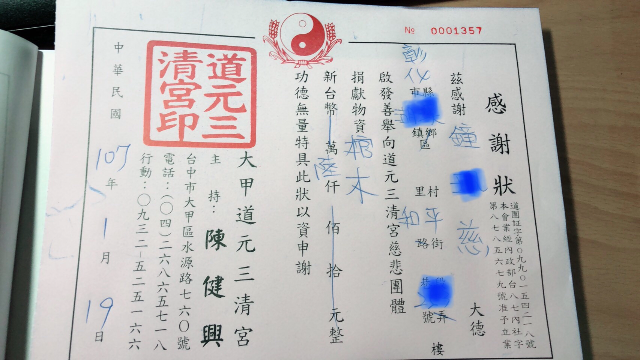 № 0001357
感謝狀
道團証字第0九九0一五四二一八號
本會業經內政部台八七內社字
第八七八五六七九號准予立業
茲感謝 鐘 慈 大德
彰化市縣 鎮鄉區 里村 和平路街 號弄 樓
啟發善舉向道元三清宮慈悲團體
捐獻物資 棺木
新台幣 萬陸仟 佰 拾 元整
功德無量特具此狀以資申謝
道元三清宮印
大甲道元三清宮
主持：陳健興
台中市大甲區水源路七六0號
電話：(0四)二六八六五七一八
行動：0九三二-五二五一六六
中華民國 107年 1月 19日